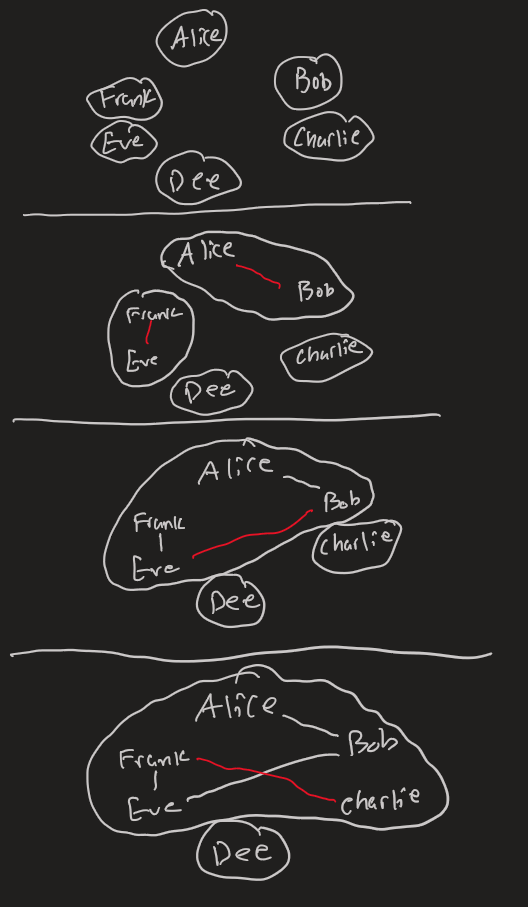 Alice
Bob
Frank
Eve
Charlie
Dee
Alice
Bob
Frank
Eve
Charlie
Dee
Alice
Bob
Frank
Eve
Charlie
Dee
Alice
Bob
Frank
Eve
Charlie
Dee